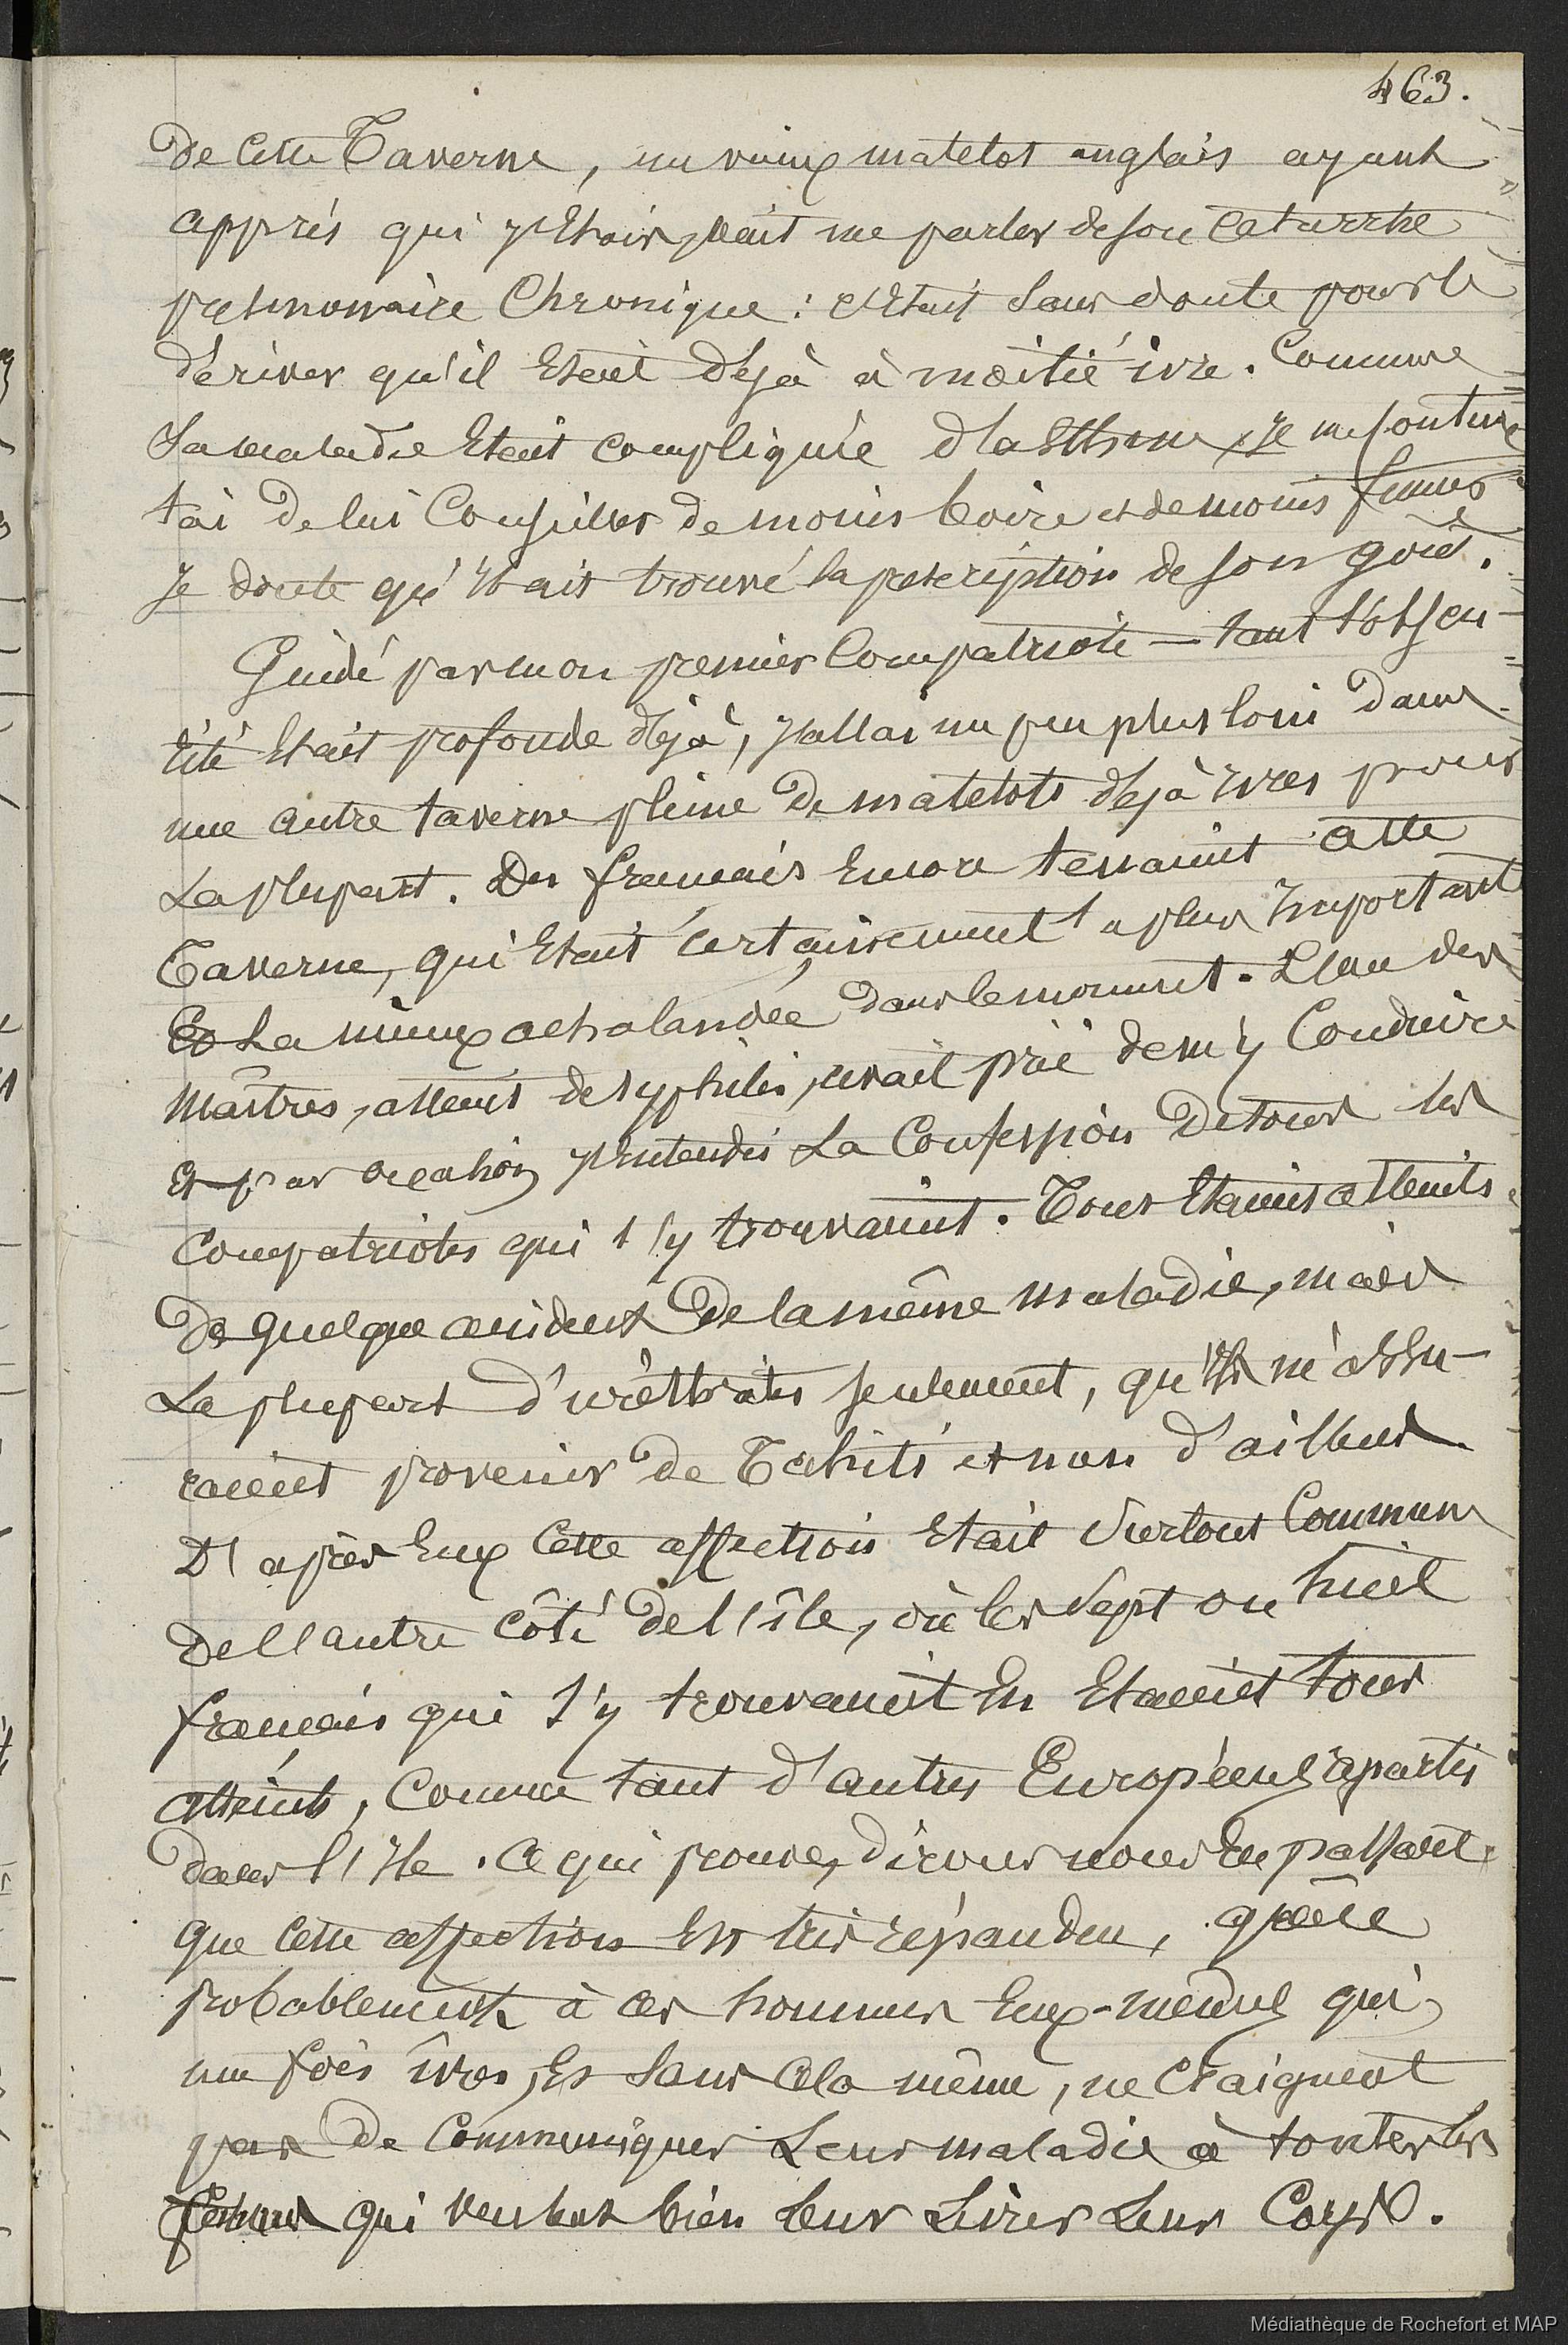 463.
De Cette Taverne, un vieux matelot anglais ayant
appris qui j'Etais, vait me parler de son Catarrhe
pulmonaire Chronique : c'Etait Sans doute pour le
dériver qu'il Etait déjà à moitié ivre. Comme
Sa maladie Etait compliquée d'asthme, je me conten
tai de lui Conseiller de moins boire et de moins fumer
Je doute qu'il ait trouvé la prescription de son goût.
Guidé par mon premier Compatriote — tant l'obscu-
rité Etait profonde déjà, j'allai un peu plus loin Dans
une autre taverne pleine De matelots déjà ivres pour
La plupart. Des français Encore tenaient cette
Taverne, qui Etait certainement la plus Important
Et La mieux achalandée Dans le moment. L'un des
Maîtres, atteint de syphilis, avait prié de m'y Conduire
Et par occasion j'entendis La Confession De tous les
Compatriotes qui s'y trouvaient. Tous Etaient atteints
De quelque accident De la même maladie, mais
La plupart d'uréthrites seulement, qu'ils m'assu-
raient provenir De Tahiti et non d'ailleurs.
D'après Eux Cette affection Etait Surtout Commune
De l'autre côté De l'île, où les Sept ou huit
français qui s'y trouvaient En Etaient tous
atteints, Comme tant d'autres Européens répartis
Dans l'Ile. Ce qui prouve, dirons nous En passant,
que Cette affection Est très répandue, grâce
probablement à ces hommes Eux-mêmes qui,
une fois ivres, Et Sans Cela même, ne Craignent
pas De Communiquer Leur maladie à toutes les
femmes qui veulent bien leur Livrer Leur Corps.
Médiathèque de Rochefort et MAP